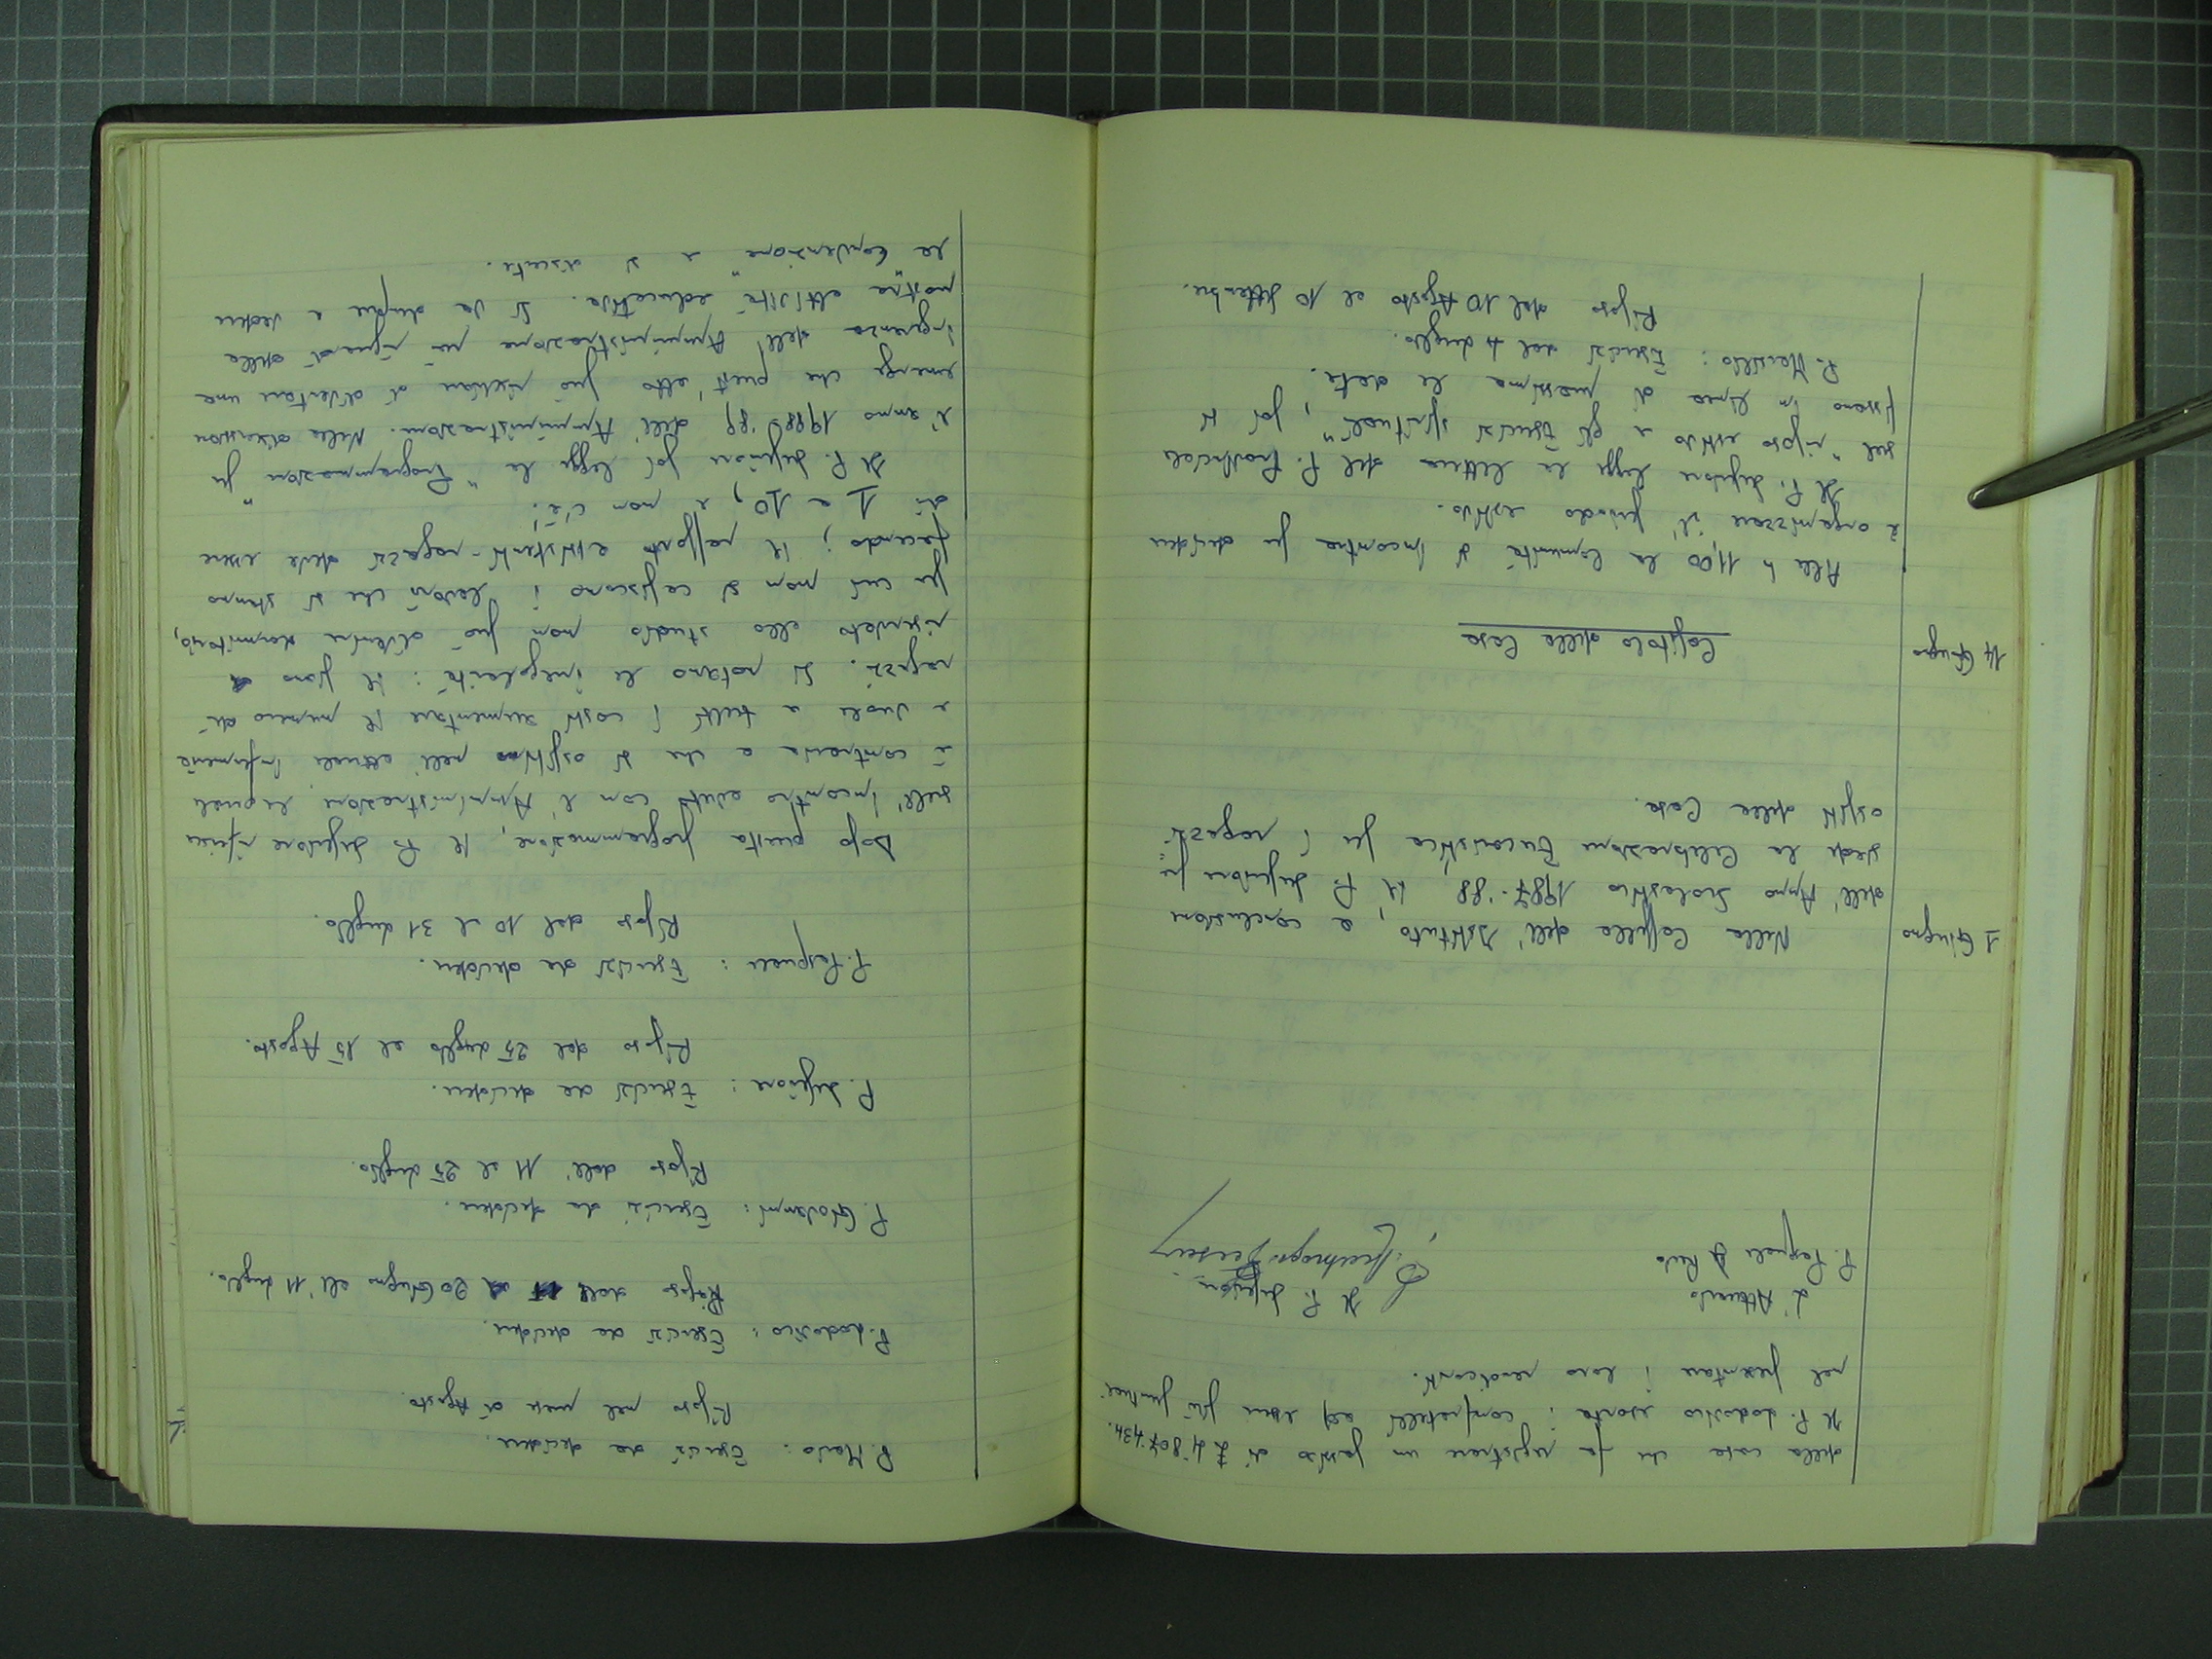 della casa che fa registrare un passivo di £ 4.807.434.
Il P. Lodovico esorta i confratelli ad essere più puntuali
nel presentare i loro rendiconti.
L'Attuario
Il P. Superiore
P. Pasquale Di
1 Giugno
Nella Cappella dell'Istituto, a conclusione
dell'Anno Scolastico 1987-'88, il P. Superiore pre=
siede la Celebrazione Eucaristica per i ragazzi
ospiti della Casa.
14 Giugno
Capitolo della Casa
Alle h 11,00 la Comunità si incontra per decidere
e organizzare il periodo estivo.
Il P. Superiore legge la lettera del P. Provinciale
sul "riposo estivo e gli Esercizi spirituali", poi si
fissano in linea di massima le date.
P. Marcello: Esercizi dal 4 Luglio.
Riposo dal 10 Agosto al 10 Settembre.
P. Mario: Esercizi da decidere.
Riposo nel mese di Agosto.
P. Lodovico: Esercizi da decidere.
Riposo dal 20 Giugno all'11 Luglio.
P. Giovanni: Esercizi da decidere.
Riposo dall'11 al 25 Luglio.
P. Superiore: Esercizi da decidere.
Riposo dal 25 Luglio al 15 Agosto.
P. Pasquale: Esercizi da decidere.
Riposo dal 10 al 31 Luglio.
Dopo questa programmazione, il P. Superiore riferisce
sull'incontro avuto con l'Amministrazione, la quale
è contraria a che si ospitino nell'attuale infermeria
e vuole a tutti i costi aumentare il numero di
ragazzi. Si notano le irregolarità: il piano
riservato allo studio non può divenire dormitorio,
per cui non si capiscono i lavori che si stanno
facendo; il rapporto assistenti-ragazzi deve essere
di 1 a 10, e non c'è!
Il P. Superiore poi legge la "Programmazione per
l'anno 1988-'89" dell'Amministrazione. Nella discussione
emerge che quest'atto può rischiare di diventare una
ingerenza dell'Amministrazione nei riguardi della
nostra attività educativa. Si va dunque a vedere
la "Convenzione" e si discute.